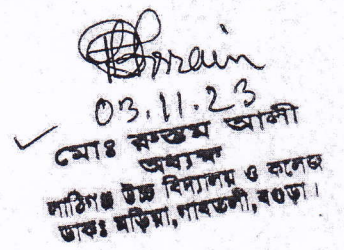 03.11.23
মোঃ রুস্তম আলী
অধ্যক্ষ
উচ্চ বিদ্যালয় ও কলেজ
ডাকঃ গাবতলী, বগুড়া।